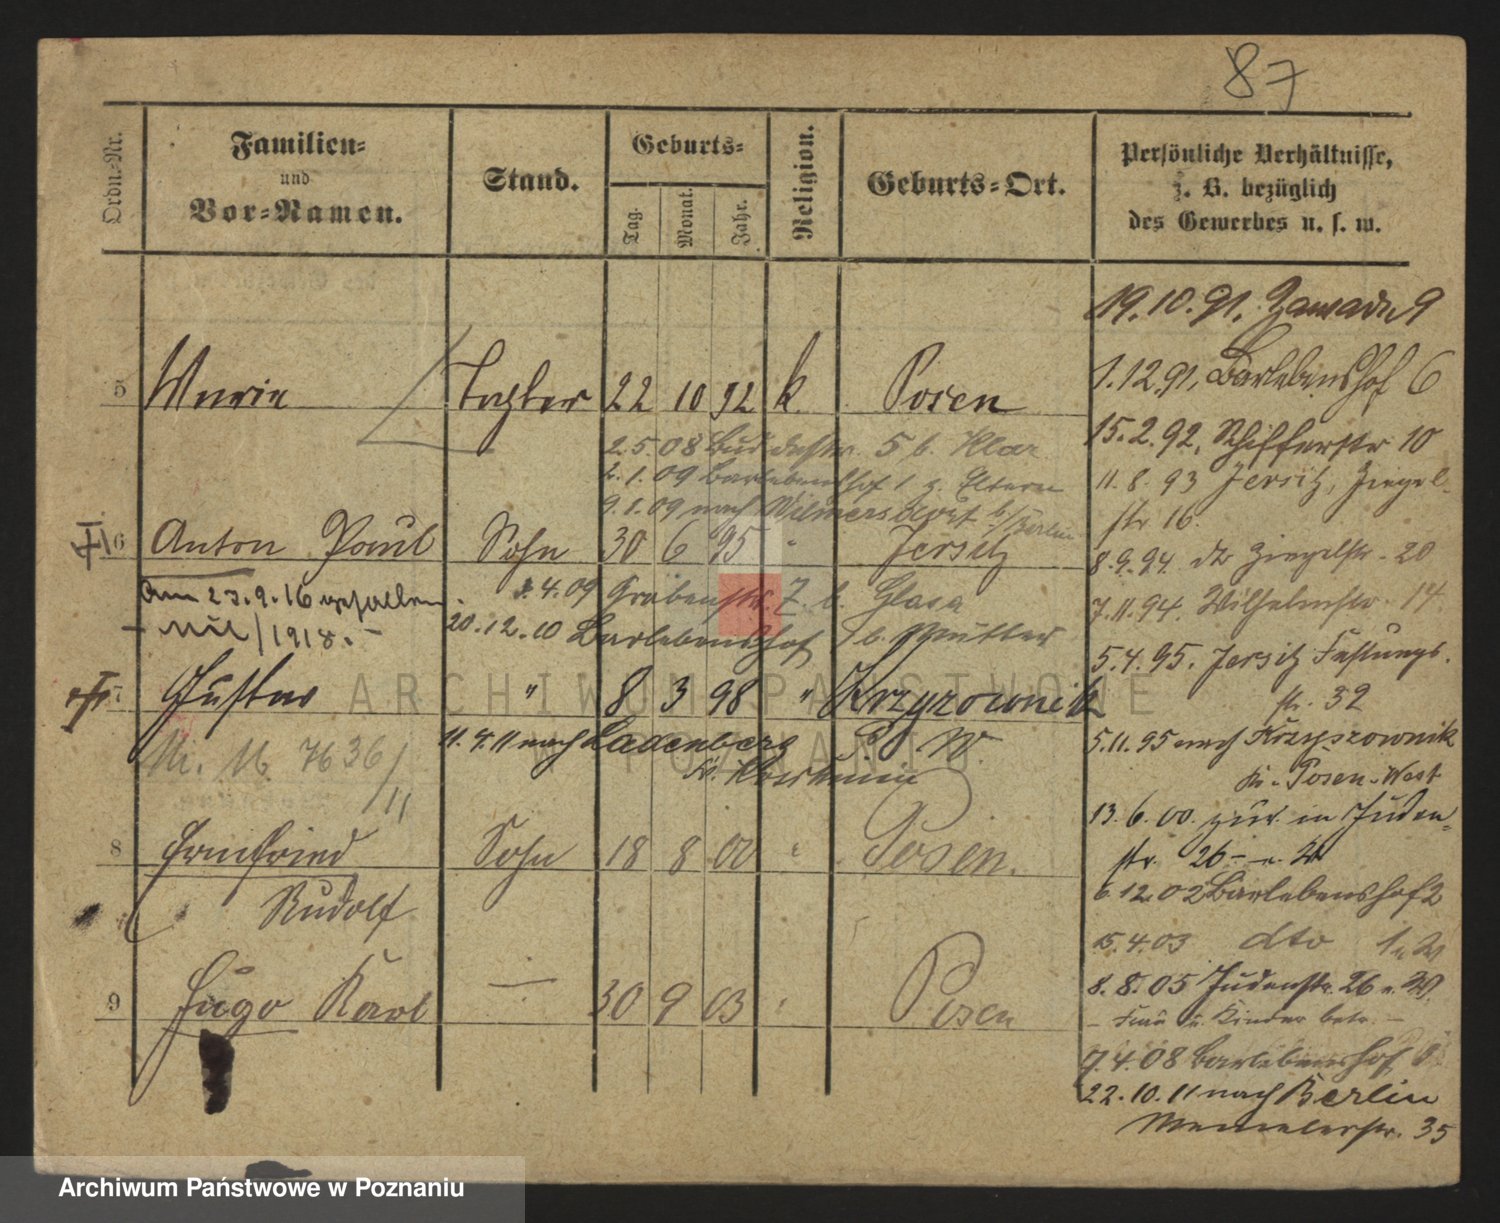 87
Ordn.-Nr.
Familien-
und
Vor-Namen.
Stand.
Geburts-
Tag.
Monat.
Jahr.
Religion.
Geburts-Ort.
Persönliche Verhältnisse,
z. B. bezüglich
des Gewerbes u. s. w.
19.10.91. Zawade 9
1.12.91, Barlebenshof 6
5 Marie Tochter 22 10 92 k Posen
15.2.92, Schifferstr 10
2.5.08 5 b. Klar
2.1.09 Barlebenshof 1 z. Eltern
11.8.93 Jersitz, Ziegel-
str 16.
9.1.09 nach Wilmersdorf b/Berlin
6 Anton Paul Sohn 30 6 95 " Jersitz
8.9.94. do Ziegelstr. 20
Am 23.9.16 gefallen
Mil/1918.
4.09 Grabenstr. 7. b. Glasa
20.12.10 Barlebenshof 1 b. Mutter
7.11.94. Wilhelmstr. 14
5.4.95. Jersitz Festungs-
str. 32
7 Gustav " 8 3 98 " Krzyzownik
11.4.11 nach Ladenberg P. W.
Kr.
7636/11
5.11.95 nach Krzyszownik
Kr. Posen-West
13.6.00. zur. in Juden-
str. 26 - n. W
8 Ernfried Sohn 18 8 00 " Posen.
Rudolf
6.12.02 Barlebenshof 2
15.4.03 dto 1 n W
9 Hugo Karl — 30 9 03 " Posen
8.8.05 Judenstr. 26 n. W.
- Frau u. Kinder betr. -
7.4.08 Barlebenshof 1
22.10.11 nach Berlin
Memelerstr. 35
ARCHIWUM PAŃSTWOWE
POZNANIU
Archiwum Państwowe w Poznaniu